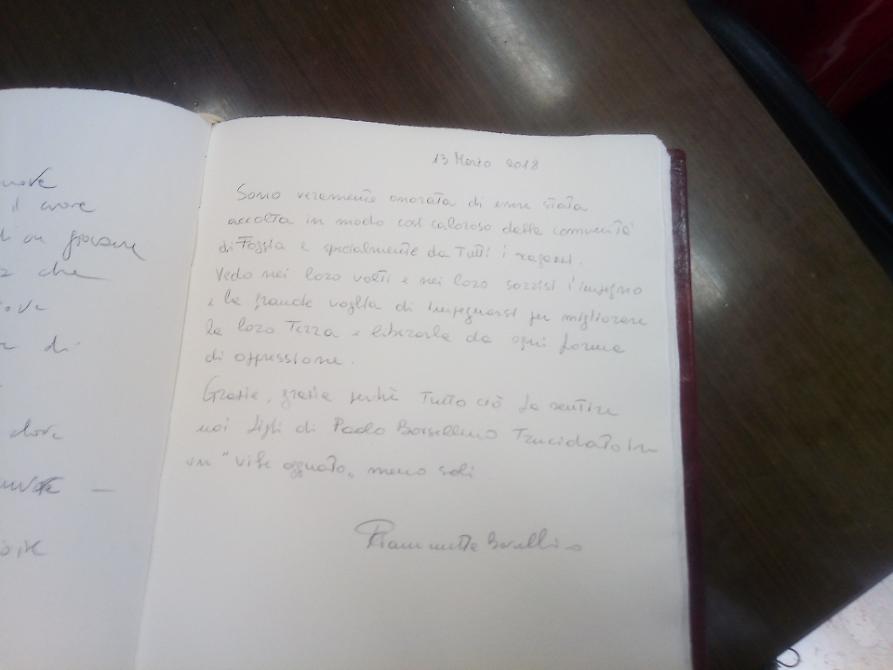 nove
il cuore
di un giovane
che
di
dove
13 Marzo 2018
Sono veramente onorata di essere stata
accolta in modo così caloroso dalla comunità
di Foggia e specialmente da Tutti i ragazzi.
Vedo nei loro volti e nei loro sorrisi l'impegno
e la grande voglia di impegnarsi per migliorare
la loro Terra e liberarla da ogni forma
di oppressione.
Grazie, grazie perché Tutto ciò fa sentire
noi figli di Paolo Borsellino Trucidato in
un "vile agguato" meno soli
Fiammetta Borsellino